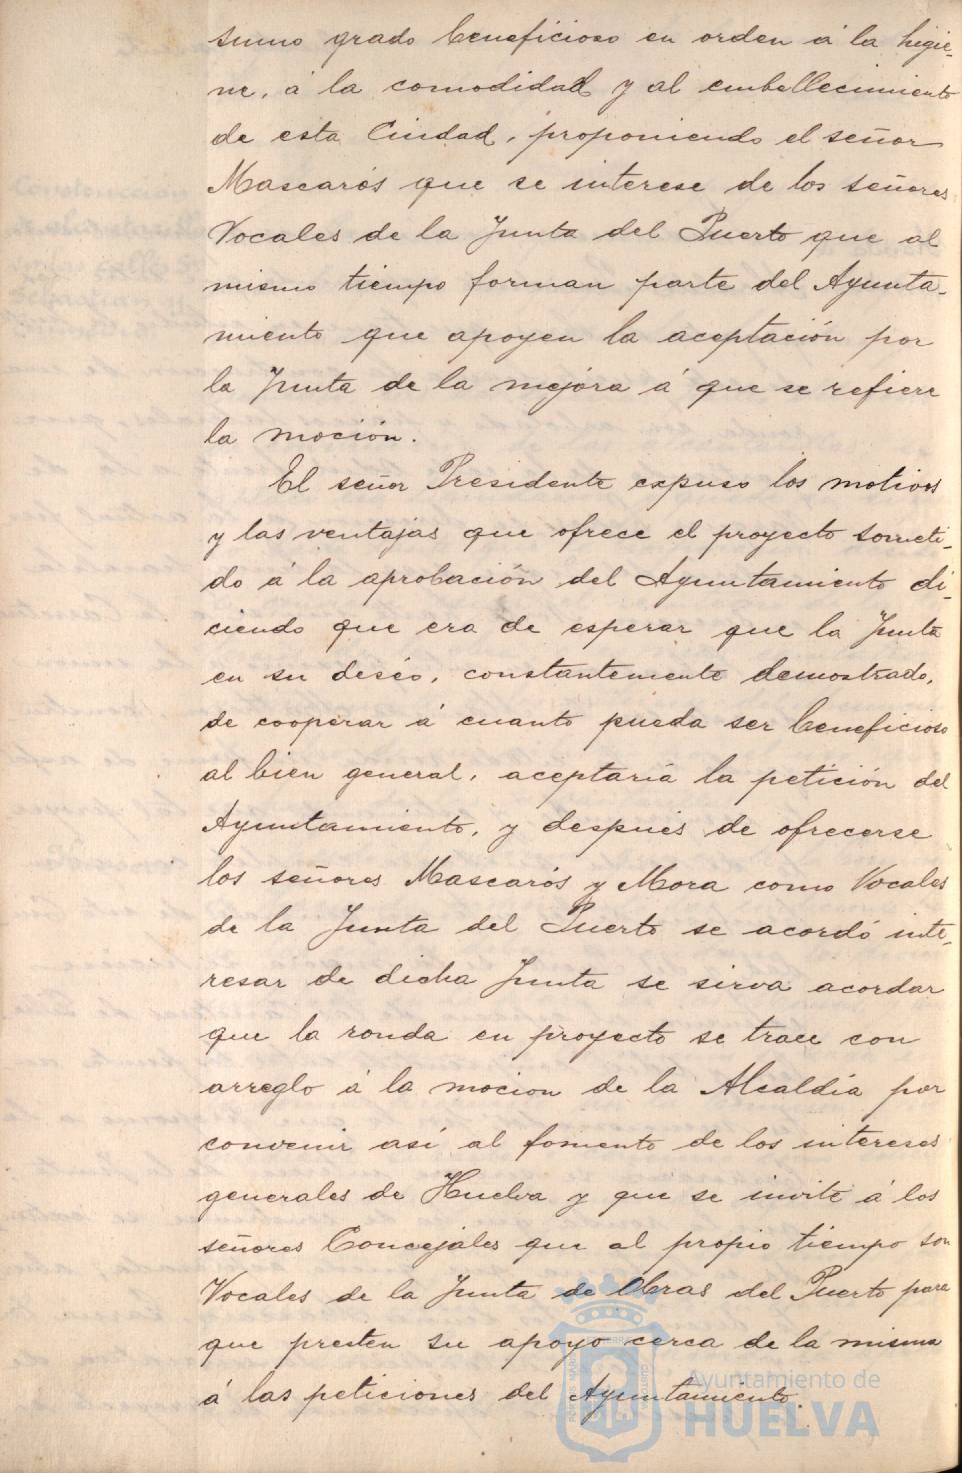 sumo grado beneficioso en orden á la higie-
ne, á la comodidad y al embellecimiento
de esta Ciudad, proponiendo el señor
Mascarós que se interese de los señores
Vocales de la Junta del Puerto que al
mismo tiempo forman parte del Ayunta-
miento que apoyen la aceptación por
la Junta de la mejora á que se refiere
la moción.
El señor Presidente expuso los motivos
y las ventajas que ofrece el proyecto someti-
do á la aprobación del Ayuntamiento di-
ciendo que era de esperar que la Junta
en su deseo, constantemente demostrado,
de cooperar á cuanto pueda ser beneficioso
al bien general, aceptaría la petición del
Ayuntamiento, y después de ofrecerse
los señores Mascarós y Mora como Vocales
de la Junta del Puerto se acordó inte-
resar de dicha Junta se sirva acordar
que la ronda en proyecto se trace con
arreglo á la mocion de la Alcaldía por
convenir así al fomento de los intereses
generales de Huelva y que se invite á los
señores Concejales que al propio tiempo son
Vocales de la Junta de Obras del Puerto para
que presten su apoyo cerca de la misma
á las peticiones del Ayuntamiento.
Ayuntamiento de
HUELVA